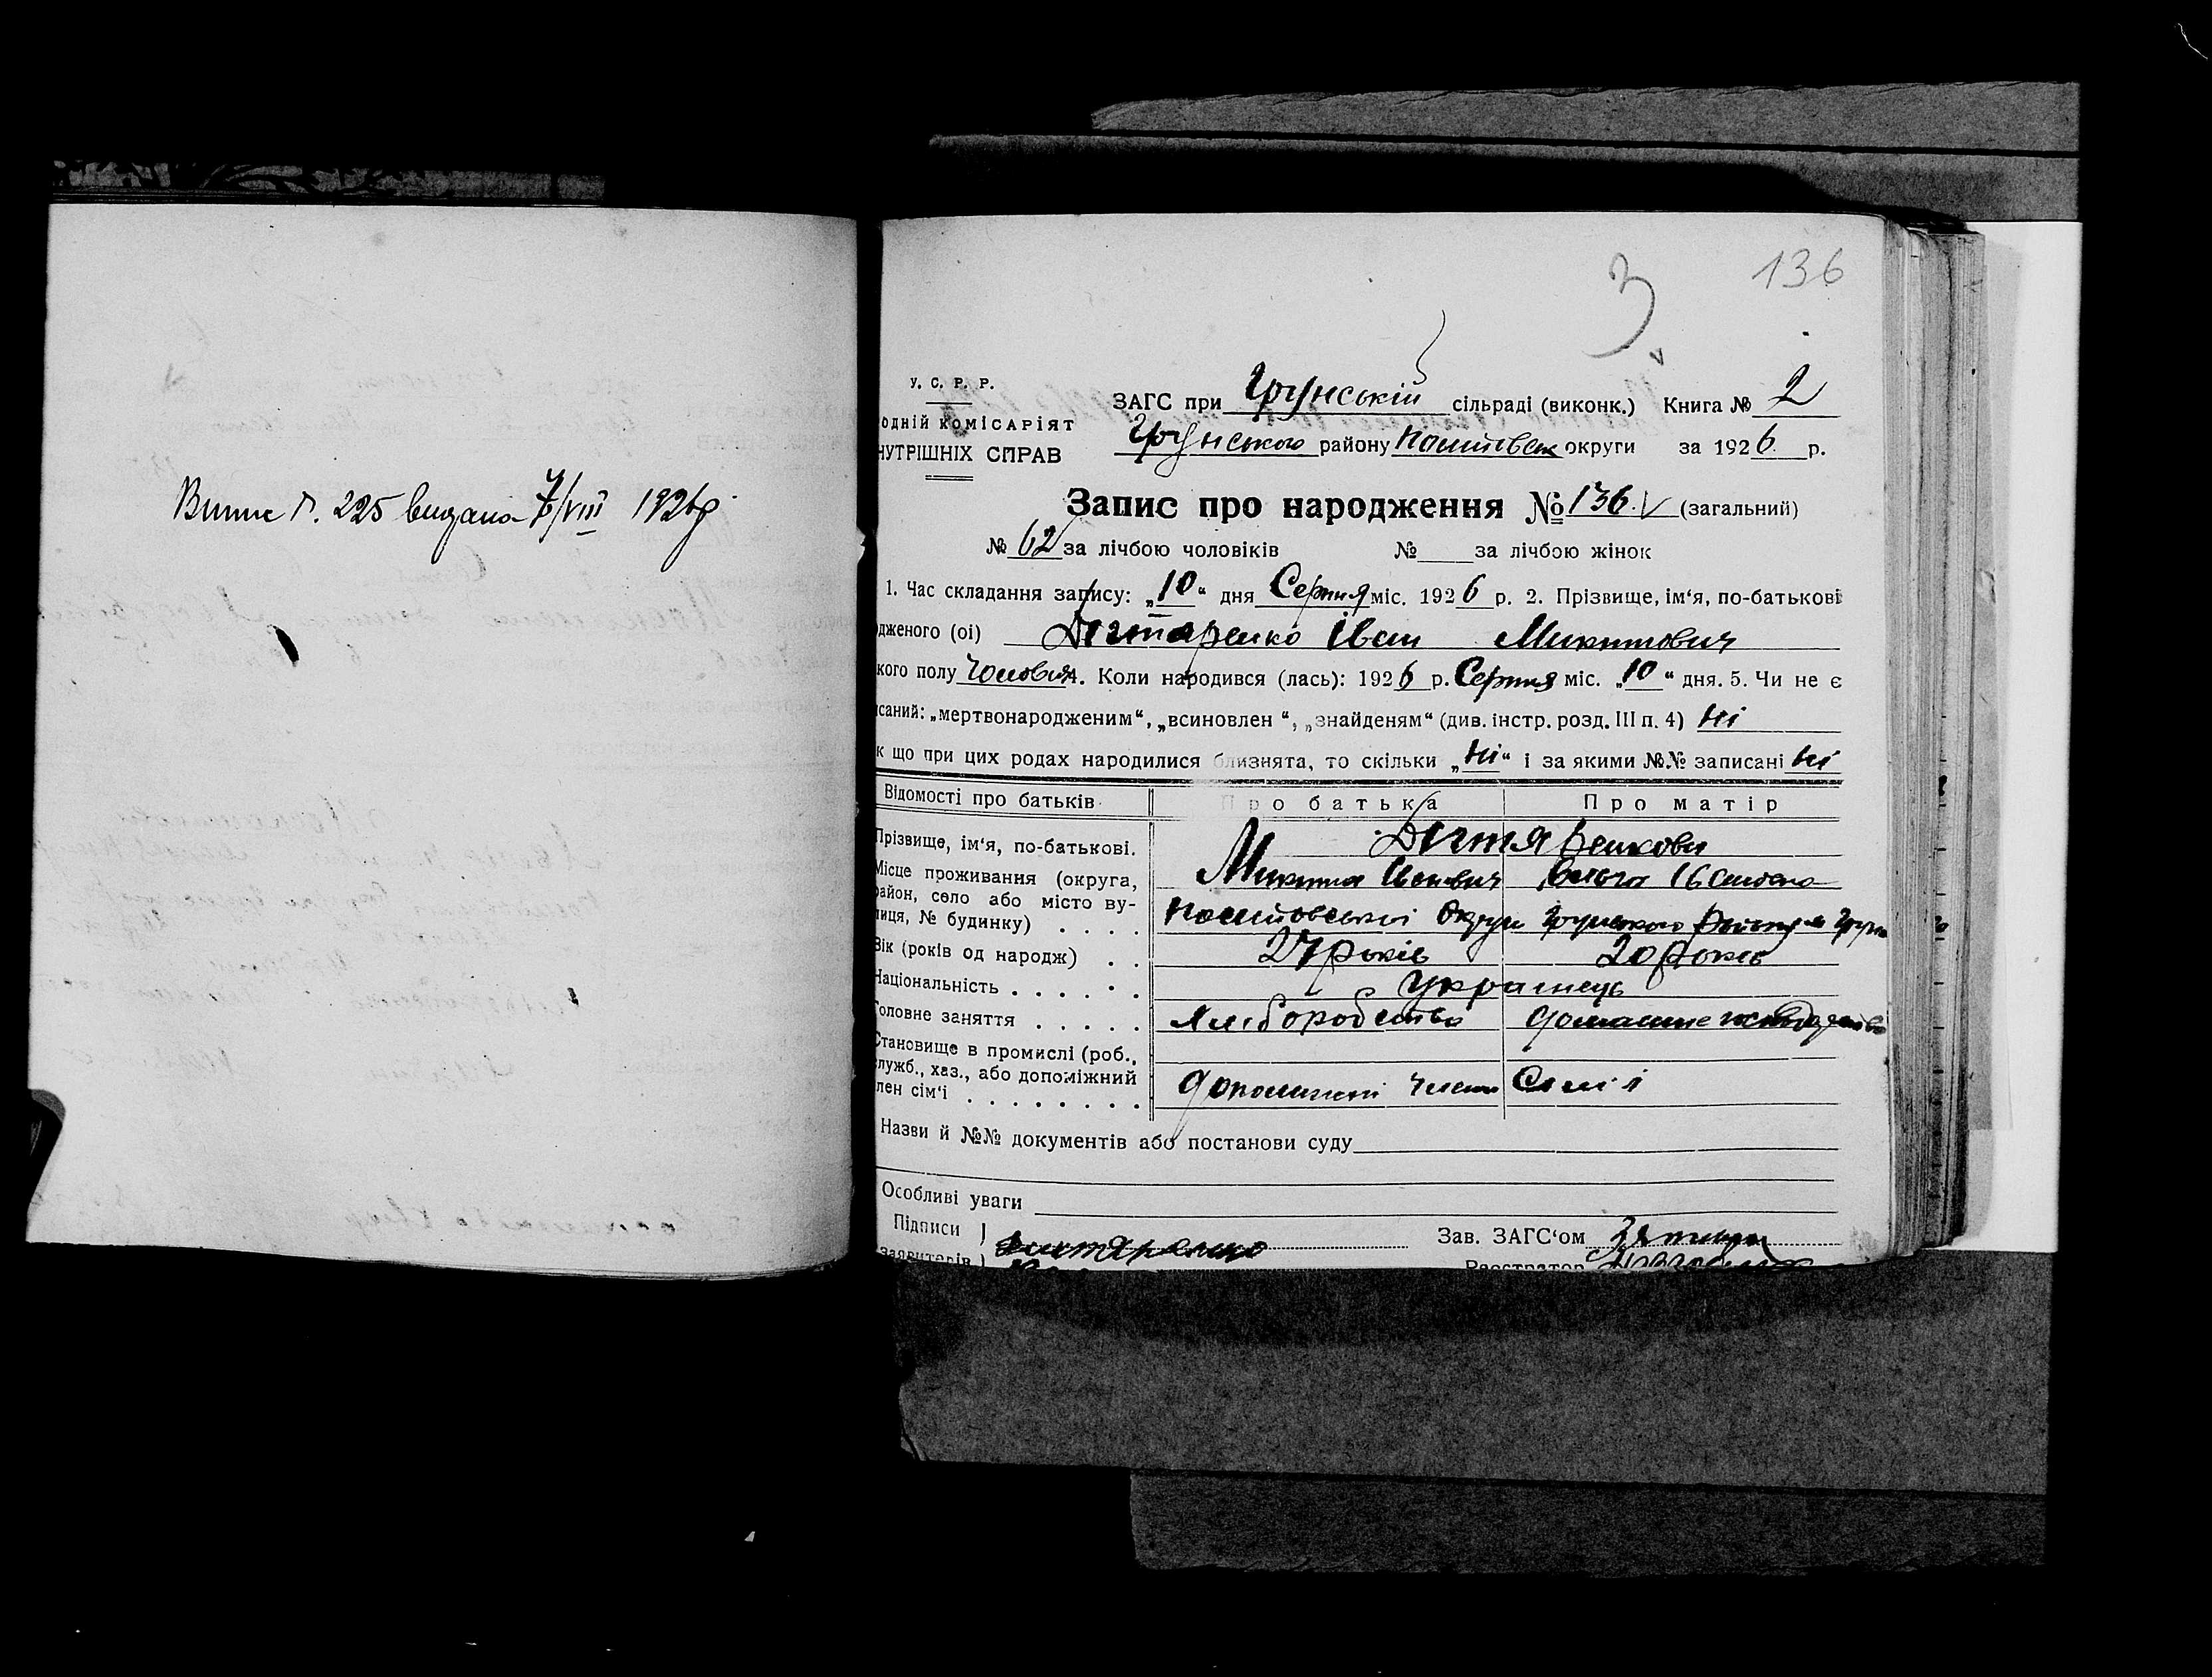 Випис №. 225 видана 7/VIII 1926 р.
3
136
У. С. Р. Р.
одній комісаріят
нутрішніх справ
ЗАГС при Грунській сільраді (виконк.) Книга № 2
Грунського району округи за 1926 р.
Запис про народження № 136. (загальний)
№ 62 за лічбою чоловіків № за лічбою жінок
1. Час складання запису: „10“ дня Серпня міс. 1926 р. 2. Прізвище, ім‘я, по-батькові
дженого (оі) Дігтяренко Іван Микитович
кого полу Чоловіч 4. Коли народився (лась): 1926 р. Серпня міс. „10“ дня. 5. Чи не є
саний: „мертвонародженим“, „всиновлен “, „знайденям“ (див. інстр. розд. III п. 4) ні
к що при цих родах народилися близнята, то скільки „ні“ і за якими №№ записані ні
Відомості про батьків Про батька Про матір
Прізвище, ім‘я, по-батькові. Дігтяренкови
Микита Іванович
Місце проживання (округа, район, село або місто вулиця, № будинку) . . . . Округи Грунського району
Вік (років од народж) . . 27 років 20 років
Національність . . . . . . Українець
Головне заняття . . . . . Хліборобство домашнє
Становище в промислі (роб., служб., хаз., або допоміжний
лен сім‘і . . . . . . . . . допоміжні члени Сімʼі
Назви й №№ документів або постанови суду
Особливі уваги
Підписи Дихтяренко Зав. ЗАГС‘ом
заявителів Реєстратор